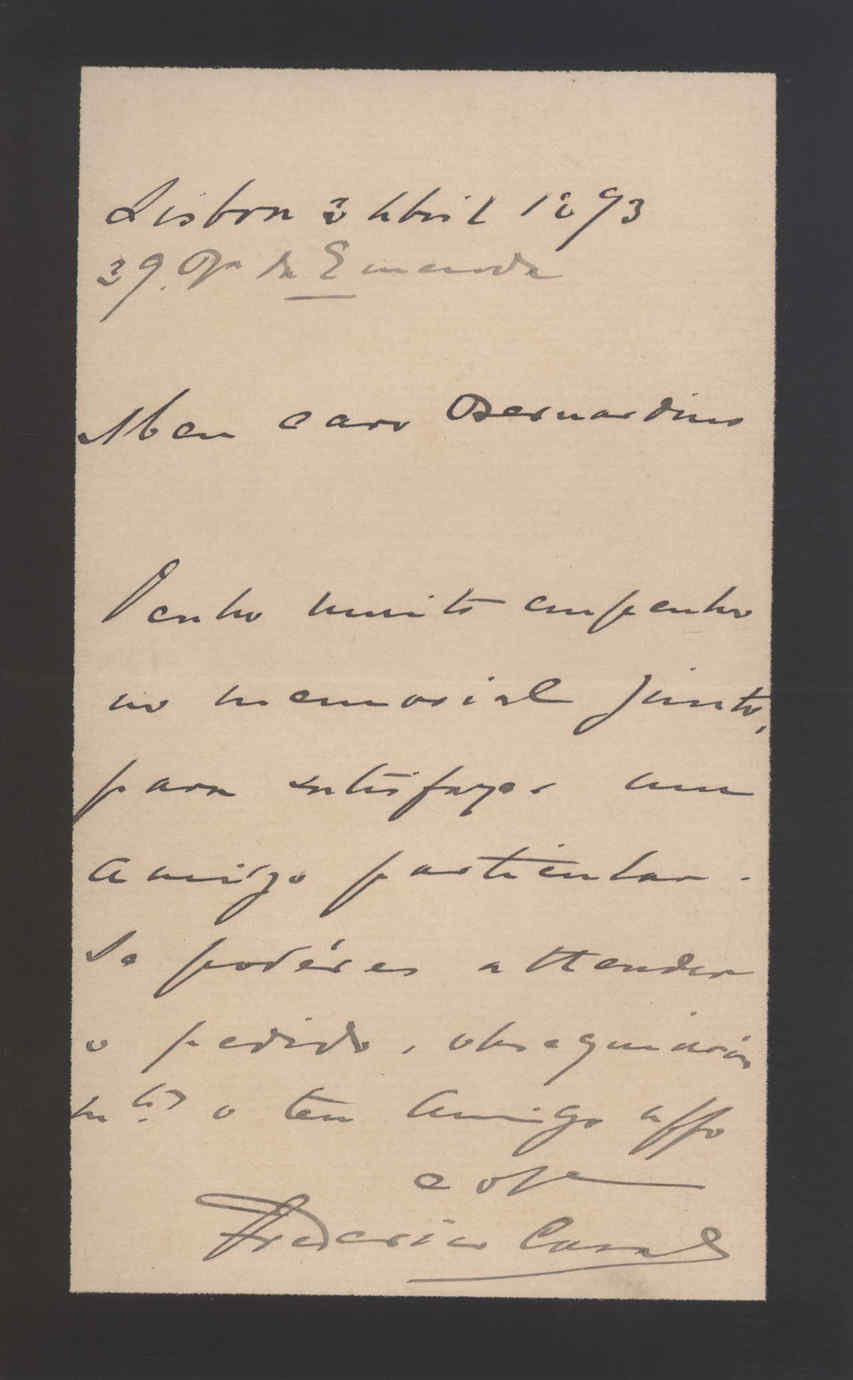 Lisboa 3 Abril 1893
39. da Emenda
Meu caro Bernardino
Tenho muito empenho
no memorial junto,
para satisfazer um
amigo particular.
Se podéres attender
o pedido, obsequiarás
mto o teu Amigo affo
e
Frederico